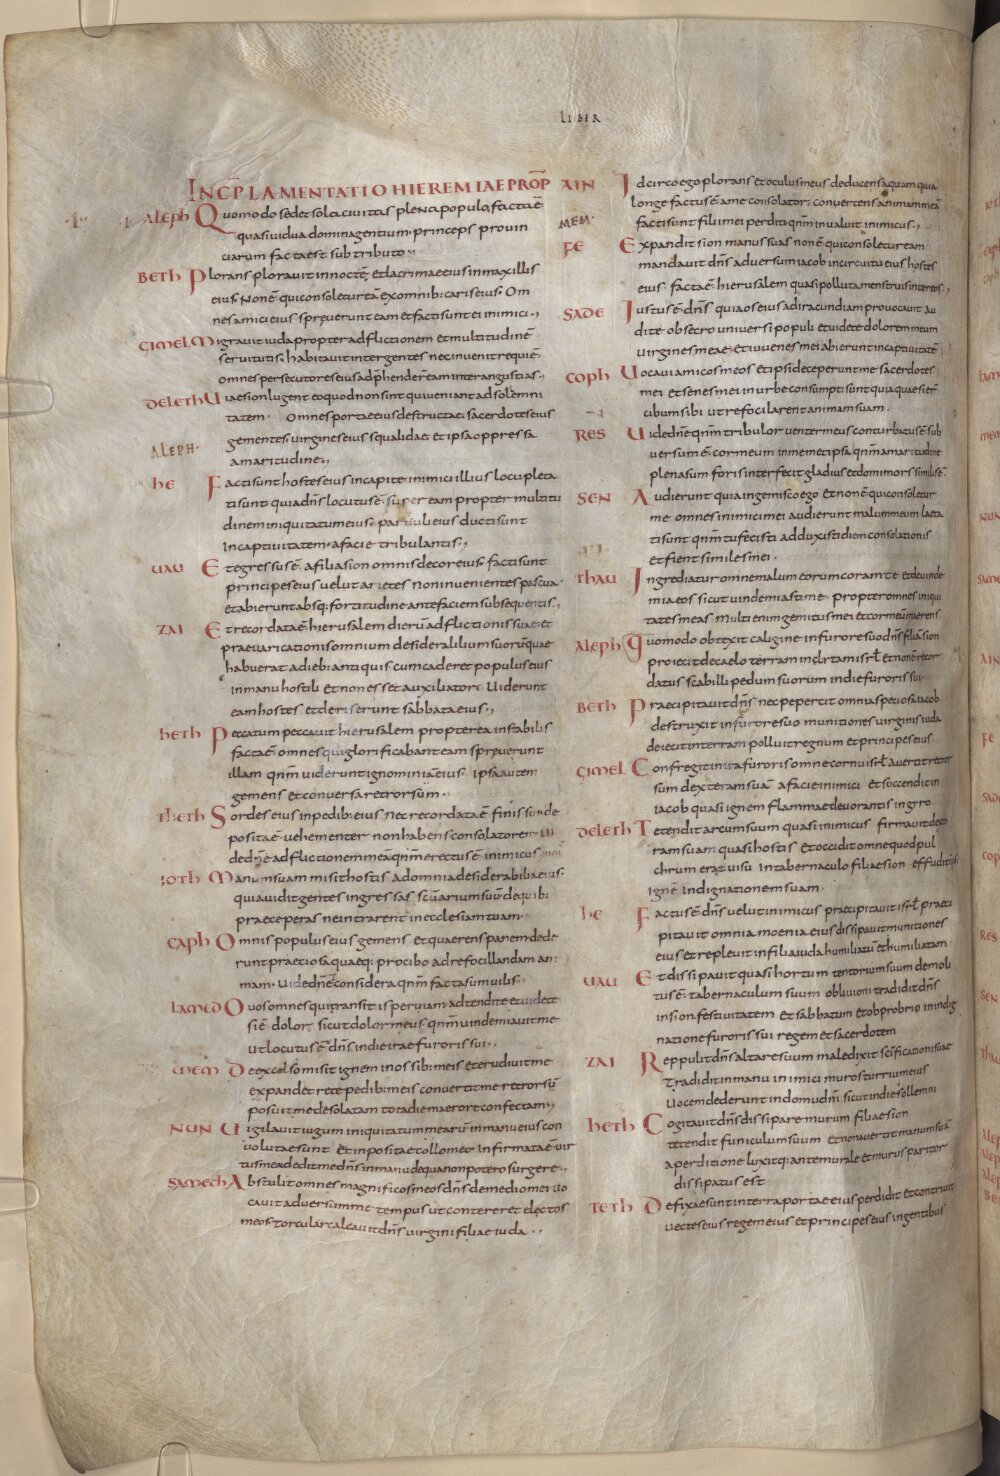 LIBER
INCP LAMENTATIO HIEREMIAE PROP
ALEPH Quomodo sedet sola civitas plena populo, facta ē
quasi vidua domina gentium · princeps provin
ciarum facta est sub tributo
BETH Plorans ploravit in nocte, et lacrimae eius in maxillis
eius · Non ē qui consoletur eā ex omnib; caris eius · Om
nes amici eius spreverunt eam et facti sunt ei inimici
GIMEL Migravit iuda propter adflictionem et multitudinē
servitutis, habitavit inter gentes nec invenit requiē
omnes persecutores eius adp̄henderī eam inter angustias
DELETH Viae sion lugent eo quod non sint qui veniant ad solemni
tatem · Omnes portae eius destructae, sacerdotes eius
gementes, virgines eius squalidae, et ipsa oppressa
ALEPH ·
amaritudine
HE Facti sunt hostes eius in capite inimici illius locupleta
ti sunt quia dn̄s locutus ē super eam propter multitu
dinem iniquitatum eius · parvuli eius ducti sunt
in captivitatem a facie tribulantis
VAU Et egressus ē a filia sion omnis decor eius · facti sunt
principes eius velut arietes non invenientes pascua ·
et abierunt absq; fortitudine ante faciem subsequentis
ZAI Et recordata ē hierusalem dierū adflictionis suae et
praevaricationis omnium desideralilium suorū quae
habuerat a dieb; antiquis cum caderet populus eius
in manu hostili et non esset auxiliator · Viderunt
eam hostes et deriserunt sabbata eius
HETH Peccatum peccavit hierusalem propterea instabilis
facta ē omnes qui glorificabant eam spreverunt
illam qn̄m viderunt ignominiā eius · ipsa autem
gemens et conversa retrorsum
THETH Sordes eius in pedib; eius nec recordata ē finis sui de
posita ē vehementer non habens consolatorem Vi
de dn̄e adflictionem meā qn̄m erectus ē inimicus
IOTH Manum suam misit hostis ad omnia desiderabilia eius ·
quia vidit gentes ingressas sc̄uarium suū de quib;
praeceperas ne intrarent in ecclesiam tuam ·
CAPH Omnis populus eius gemens et quaerens panem dede
runt praetiosa quaeq; pro cibo ad refocillandam an
mam · vide dn̄e et considera qn̄m facta sum vilis
LAMED O vos omnes qui transitis per viam adtendite et videte
si ē dolor sicut dolor meus qn̄m vindemiavit me
ut locutus ē dn̄s in die irae furoris sui
MEM De excelso misit ignem in ossib; meis et erudivit me
expandet rete pedib; meis convertit me retrorsū
posuit me desolatam tota die maerore confectam
NUN Vigilavit iugum iniquitatum mearū in manu eius con
volutae sunt et inpositae collo meo Infirmata ē vir
tus mea dedit me dn̄s in manu de qua non potero surgere
SAMECH Abstulit omnes magnificos meos dn̄s de medio mei vo
cavit adversum me tempus ut contereret electos
meos torcular calcavit dn̄s virgini filiae iuda
AIN Idcirco ego plorans et oculus meus deducens aquam quia
MEM ·
longe factus ē a me consolator convertens animam meā
facti sunt filii mei perditi qn̄m invaluit inimicus
FE Expandit sion manus suas non ē qui consoletur eam
mandavit dn̄s adversum iacob in circuitu eius hostes
eius · facta ē hierusalem quasi polluta menstruis inter eos
SADE Iustus ē dn̄s quia os eius ad iracundiam provocavi au
dite obsecro universi populi et videte dolorem meum
virgines meae et iuvenes mei abierunt in captivitatē
COPH Vocavi amicos meos et ipsi deceperunt me sacerdotes
mei et senes mei in urbe consumpti sunt quia quaesier
cibum sibi ut refocilarent animam suam ·
RES Vide dn̄e qn̄m tribulor venter meus conturbatus ē sub
versum ē cor meum in memetipsa qn̄m amaritudine
plena sum foris interfecit gladius et domi mors similis ē
SEN Audierunt quia ingemisco ego et non ē qui consoletur
me omnes inimici mei audierunt malum meum laeta
ti sunt qn̄m tu fecisti adduxisti diem consolationis
et fient similes mei ·
THAU Ingrediatur omne malum eorum coram te et devinde
mia eos sicut vindemiasti me · propter omnes iniqui
tates meas multi enim gemitus mei et cor meū maerens
ALEPH Quomodo obtexit caligine in furore suo dn̄s filiā sion
proiecit de caelo terram inclitam isrl̄ et non ē recor
datus scabilli pedum suorum in die furoris sui
BETH Praecipitavit dn̄s nec pepercit omnia speciosa iacob
destruxit in furore suo munitiones virginis iuda
deiecit in terram polluit regnum et principes eius
GIMEL Confregit in ira furoris omne cornu isrl̄ avertit retror
sum dexteram suā a facie inimici et succendit in
iacob quasi ignem flammae devorantis in gyro
DELETH Tetendit arcum suum quasi inimicus firmavit dexte
ram suam quasi hostis et occidit omne quod pul
chrum erat visu in tabernaculo filiae sion effudit
ignē indignationem suam
HE Factus ē dn̄s velut inimicus praecipitavit isrl̄ praeci
pitavit omnia moenia eius dissipavit munitiones
eius et replevit in filia iuda humiliatū et humiliatam
VAU Et dissipavit quasi hortum tentorium suum demoli
tus ē tabernaculum suum oblivioni tradidit dn̄s
in sion festivitatem et sabbatum et obprobrio in indig
natione furoris sui regem et sacerdotem
ZAI Reppulit dn̄s altare suum maledixit sc̄ificationi suae
tradidit in manu inimici muros turrium eius
vocem dederunt in domu dn̄i sicut in die sollemni
HETH Cogitavit dn̄s dissipare murum filiae sion
tetendit funiculum suum et non avertit manum suā
a perditione luxitq; antemurale et murus pariter
dissipatus est ·
TETH Defixae sunt in terra portae eius perdidit et contrivit
vectes eius regem eius et principes eius in gentibus